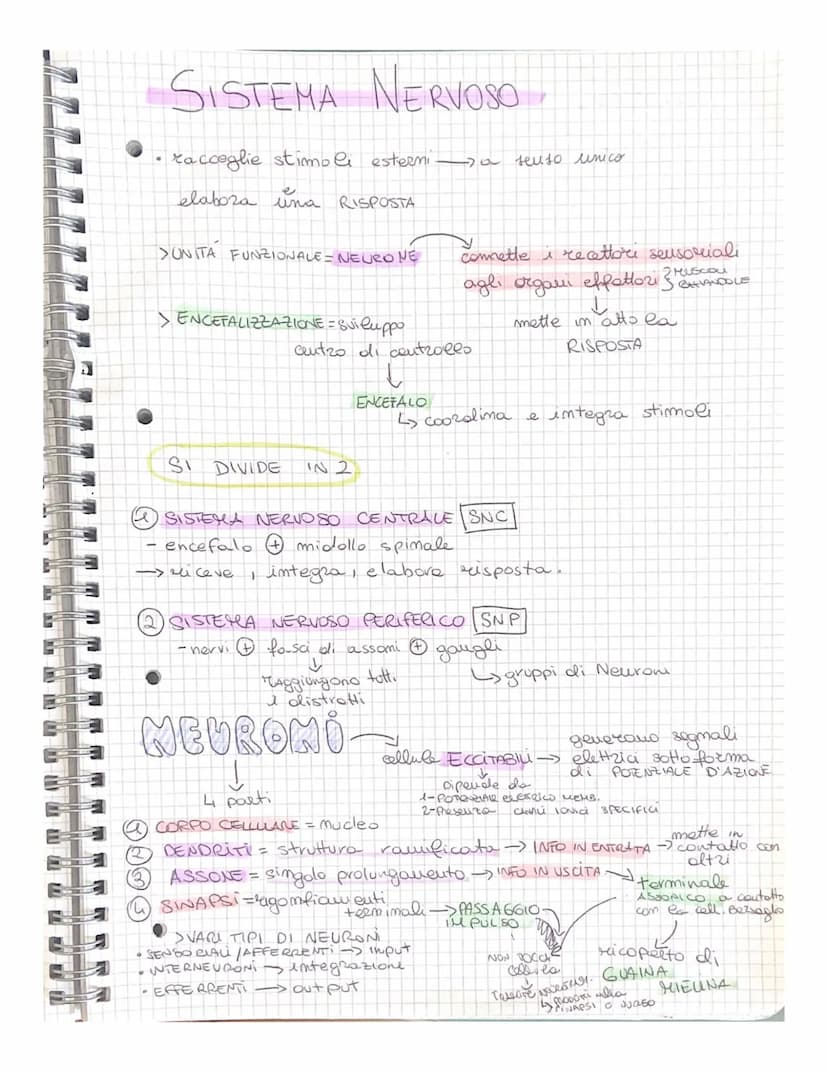 SISTEMA NERVOSO
• raccoglie stimoli esterni → a senso unico
elabora una RISPOSTA
e
> UNITÀ FUNZIONALE = NEURONE
connette i recettori sensoriali
agli organi effettori
MUSCOLI
GHIANDOLE
mette in atto la
RISPOSTA
> ENCEFALIZZAZIONE = sviluppo
centro di controllo
↓
ENCEFALO
↳ coordina e integra stimoli
SI DIVIDE IN 2
1 SISTEMA NERVOSO CENTRALE SNC
- encefalo + midollo spinale
→ riceve, integra, elabora risposta.
2 SISTEMA NERVOSO PERIFERICO SNP
- nervi + fasci di assoni + gangli
raggiungono tutti
i distretti
↳ gruppi di Neuroni
NEURONI
cellule ECCITABILI →
generano segnali
elettrici sotto forma
di POTENZIALE D'AZIONE
dipende da
1-POTENZIALE ELETTRICO MEMB.
2-Presenza CANALI IONICI SPECIFICI
4 parti
1 CORPO CELLULARE = nucleo
2 DENDRITI = struttura ramificata → INFO IN ENTRATA →
mette in
contatto con
altri
3 ASSONE = singolo prolungamento → INFO IN USCITA →
terminale
ASSONICO a contatto
con la cell. Bersaglio
ricoperto di
GUAINA
MIELINA
4 SINAPSI = rigonfiamenti
terminali → PASSAGGIO
IMPULSO
NON TOCCA
cellula
SINAPSI
> VARI TIPI DI NEURONI
• SENSORIALI/AFFERENTI → input
• INTERNEURONI → integrazione
• EFFERRENTI → output